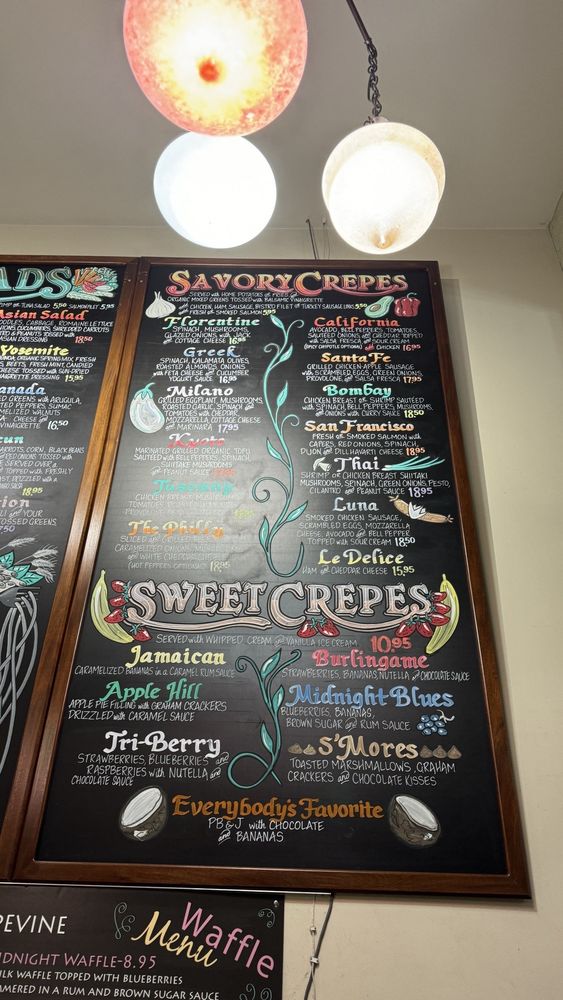 ADS
SHRIMP OR TUNA SALAD 5.50 SALMON FILET 5.95
Asian Salad
NOODLES, CABBAGE, ROMAINE LETTUCE
CUCUMBERS, SHREDDED CARROTS
& PEANUTS TOSSED WITH
18.50
Yosemite
ORGANIC SPRING MIX, FRESH
BEETS, FRESH MINT, CANDIED
CHEESE TOSSED WITH SUN-DRIED
VINAIGRETTE DRESSING 15.95
anada
GREENS WITH ARUGULA,
PEPPERS, SUMAC
WALNUTS
CHEESE AND
VINAIGRETTE 16.50
cun
CORN, BLACK BEANS
ONIONS TOSSED WITH
SERVED OVER A
TOPPED WITH FRESHLY
DRIZZLED WITH A
18.95
ion
AND YOUR
TOSSED GREENS,
SAVORY CREPES
SERVED WITH HOME POTATOES OR
ORGANIC MIXED GREENS TOSSED WITH BALSAMIC VINAIGRETTE
CHICKEN, HAM, SAUSAGE, BISTRO FILET OR TURKEY SAUSAGE LINKS 5.50
FRESH OR SMOKED SALMON 5.95
Florentine
SPINACH, MUSHROOMS,
GLAZED ONIONS
AND COTTAGE CHEESE 16.95
Greek
SPINACH, KALAMATA OLIVES,
ROASTED ALMONDS, ONIONS
WITH FETA CHEESE AND CUCUMBER
YOGURT SAUCE 16.95
Milano
GRILLED EGGPLANT, MUSHROOMS,
ROASTED GARLIC, SPINACH AND
TOMATOES WITH CHEDDAR,
MOZZARELLA, COTTAGE CHEESE
AND MARINARA 17.95
Kyoto
MARINATED GRILLED ORGANIC TOFU,
SAUTÉED WITH BELL PEPPERS, SPINACH,
SHIITAKE MUSHROOMS
AND PEANUT SAUCE
Tuscany
CHICKEN BREAST, MUSHROOMS,
The Philly
SLICED
CARAMELIZED ONIONS, MUSHROOMS
AND WHITE CHEDDAR CHEESE
(HOT PEPPERS OPTIONAL) 18.95
California
AVOCADO, BELL PEPPERS, TOMATOES,
SAUTÉED ONIONS, AND CHEDDAR TOPPED
WITH SALSA FRESCA AND SOUR CREAM
(SPICY CHIPOTLE OPTIONAL) CHICKEN 16.95
Santa Fe
GRILLED CHICKEN-APPLE SAUSAGE
WITH SCRAMBLED EGGS, GREEN ONIONS,
PROVOLONE, AND SALSA FRESCA 17.95
Bombay
CHICKEN BREAST OR SHRIMP SAUTÉED
WITH SPINACH, BELL PEPPERS, MUSHROOMS,
AND ONIONS WITH CURRY SAUCE 18.50
San Francisco
FRESH OR SMOKED SALMON WITH
CAPERS, RED ONIONS, SPINACH,
DIJON AND DILL HAVARTI CHEESE 18.95
Thai
SHRIMP OR CHICKEN BREAST SHIITAKE
MUSHROOMS, SPINACH, GREEN ONIONS, PESTO,
CILANTRO AND PEANUT SAUCE 18.95
Luna
SMOKED CHICKEN SAUSAGE,
SCRAMBLED EGGS, MOZZARELLA
CHEESE, AVOCADO AND BELL PEPPER
TOPPED WITH SOUR CREAM 18.50
Le Delice
HAM AND CHEDDAR CHEESE 15.95
SWEET CREPES
SERVED WITH WHIPPED CREAM OR VANILLA ICE CREAM 10.95
Jamaican
CARAMELIZED BANANAS in a CARAMEL RUM SAUCE
Apple Hill
APPLE PIE FILLING with GRAHAM CRACKERS
DRIZZLED with CARAMEL SAUCE
Tri-Berry
STRAWBERRIES, BLUEBERRIES and
RASPBERRIES with NUTELLA and
CHOCOLATE SAUCE
Burlingame
STRAWBERRIES, BANANAS, NUTELLA and CHOCOLATE SAUCE
Midnight Blues
BLUEBERRIES, BANANAS,
BROWN SUGAR and RUM SAUCE
S'Mores
TOASTED MARSHMALLOWS, GRAHAM
CRACKERS and CHOCOLATE KISSES
Everybody's Favorite
PB & J with CHOCOLATE
and BANANAS
PEVINE
Waffle
Menu
IDNIGHT WAFFLE-8.95
ILK WAFFLE TOPPED WITH BLUEBERRIES
MERED IN A RUM AND BROWN SUGAR SAUCE